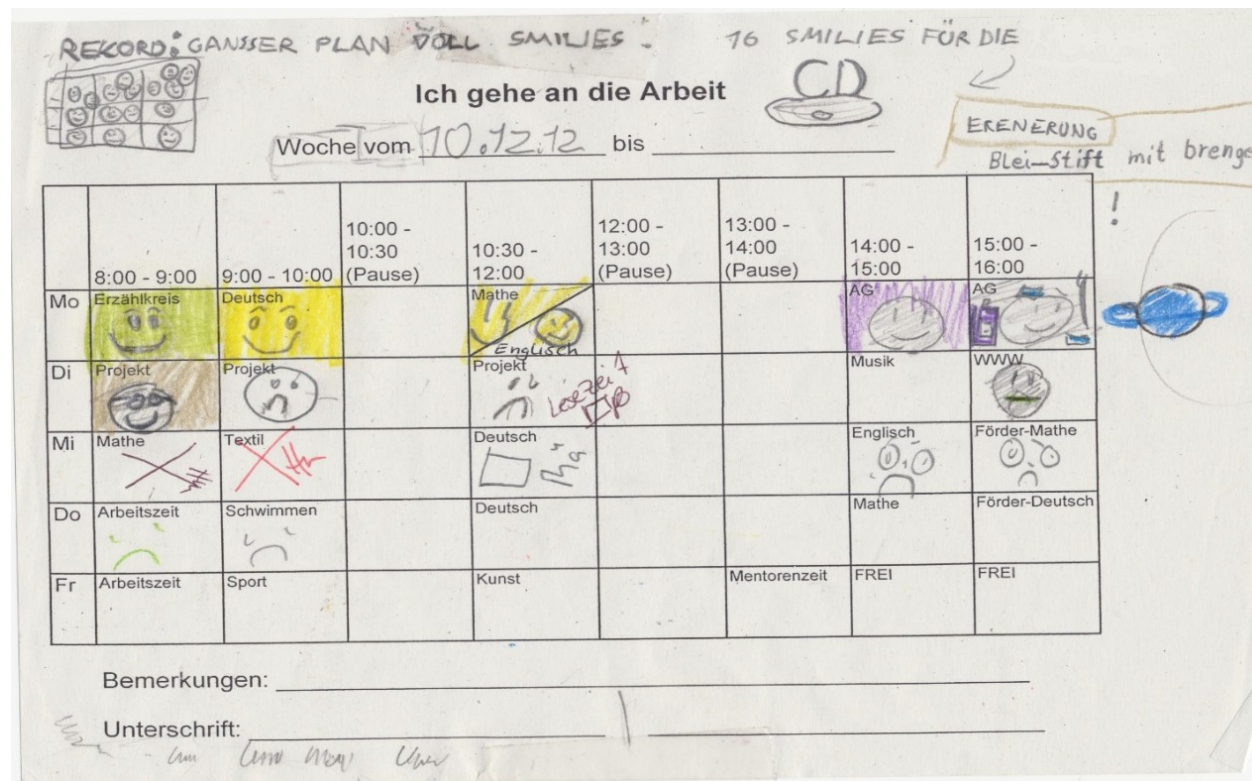 REKORD: GANSSER PLAN VOLL SMILIES. 16 SMILIES FÜR DIE
CD
Ich gehe an die Arbeit
ERENERUNG
Woche vom 10.12.12 bis
Blei-Stift mit brenge
!
8:00 - 9:00 9:00 - 10:00 10:00 - 10:30 (Pause) 10:30 - 12:00 12:00 - 13:00 (Pause) 13:00 - 14:00 (Pause) 14:00 - 15:00 15:00 - 16:00
Mo Erzählkreis Deutsch Mathe AG AG
Englisch
Di Projekt Projekt Projekt Musik WWW
Lesezeit
Mi Mathe Textil Deutsch Englisch Förder-Mathe
Do Arbeitszeit Schwimmen Deutsch Mathe Förder-Deutsch
Fr Arbeitszeit Sport Kunst Mentorenzeit FREI FREI
Bemerkungen:
Unterschrift: